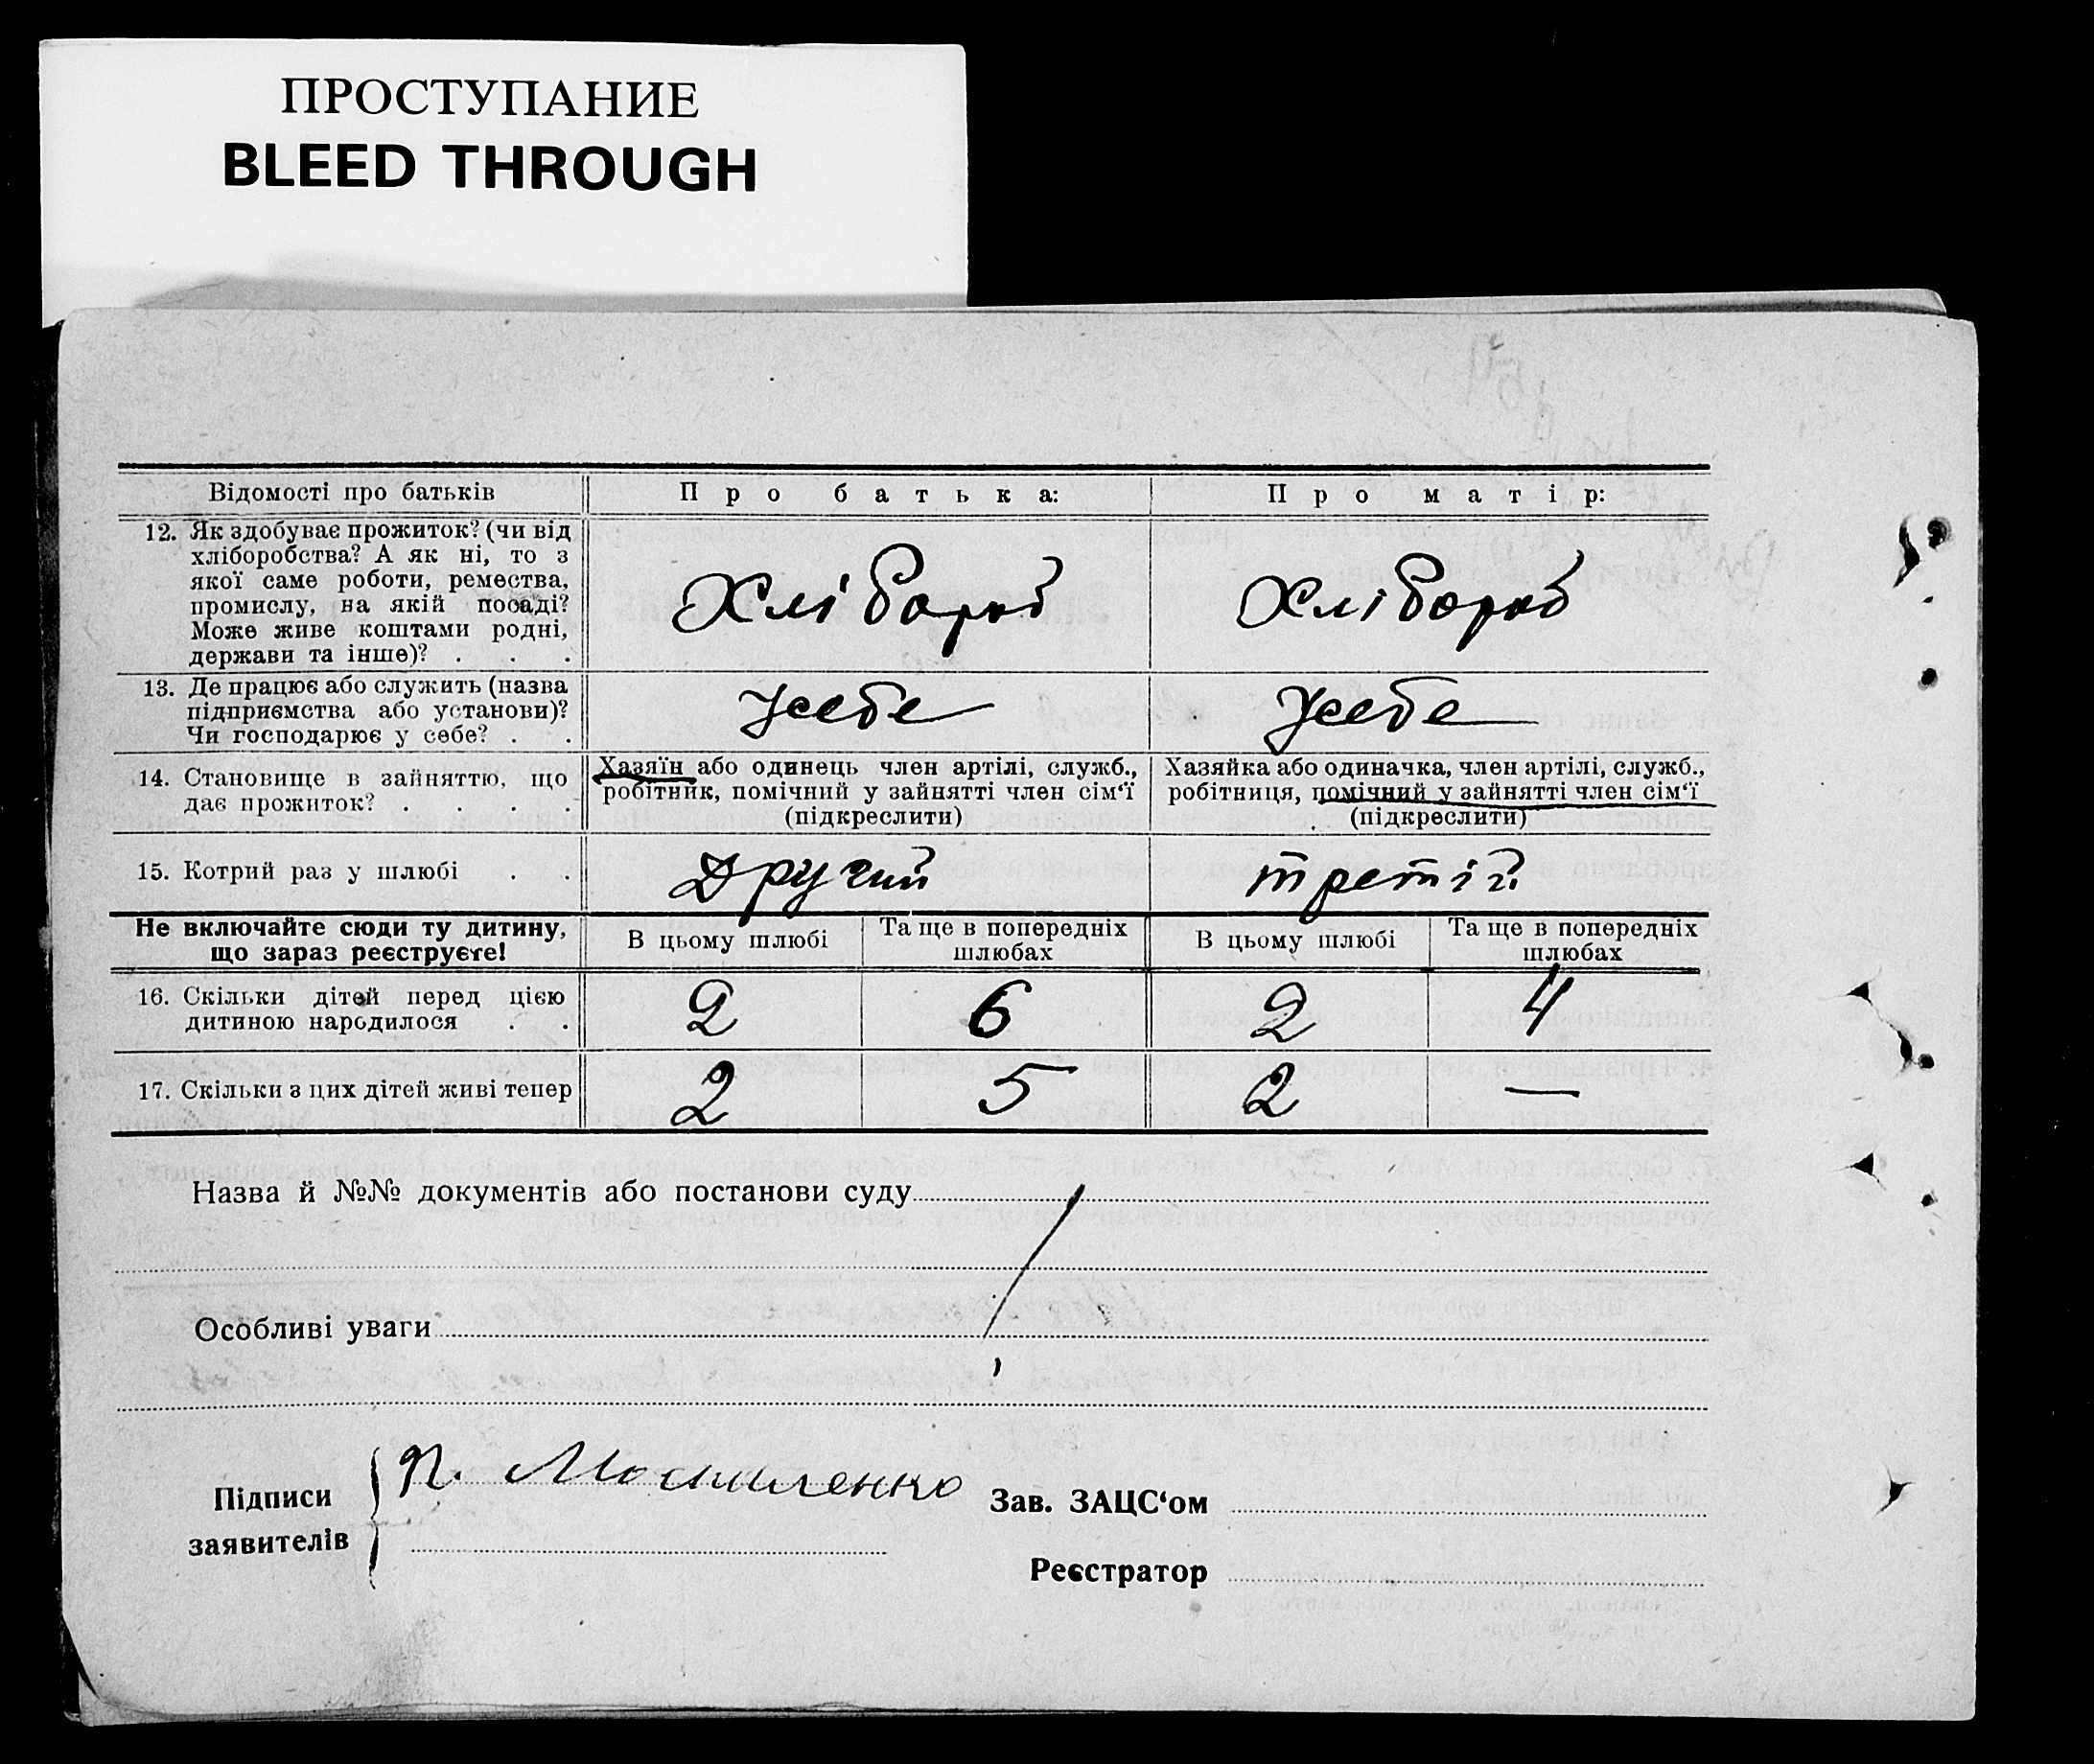 ПРОСТУПАНИЕ
BLEED THROUGH
Відомості про батьків
Про батька:
Про матір:
12. Як здобуває прожиток? (чи від
хліборобства? А як ні, то з
якої саме роботи, ремества,
промислу, на якій посаді?
Може живе коштами родні,
держави та інше)? . . .
Хлібороб
Хлібороб
13. Де працює або служить (назва
підприємства або установи)?
Чи господарює у себе? . .
Усебе
Усебе
14. Становище в зайняттю, що
дає прожиток? . . . .
Хазяїн або одинець член артілі, служб.,
робітник, помічний у зайнятті член сім‘ї
(підкреслити)
Хазяйка або одиначка, член артілі, служб.,
робітниця, помічний у зайнятті член сім‘ї
(підкреслити)
15. Котрий раз у шлюбі . .
Другий
третій
Не включайте сюди ту дитину,
що зараз реєструєте!
В цьому шлюбі
Та ще в попередніх
шлюбах
В цьому шлюбі
Та ще в попередніх
шлюбах
16. Скільки дітей перед цією
дитиною народилося . .
2
6
2
4
17. Скільки з цих дітей живі тепер
2
5
2
—
Назва й №№ документів або постанови суду
Особливі уваги
Підписи
заявителів
П.
Зав. ЗАЦС‘ом
Реєстратор